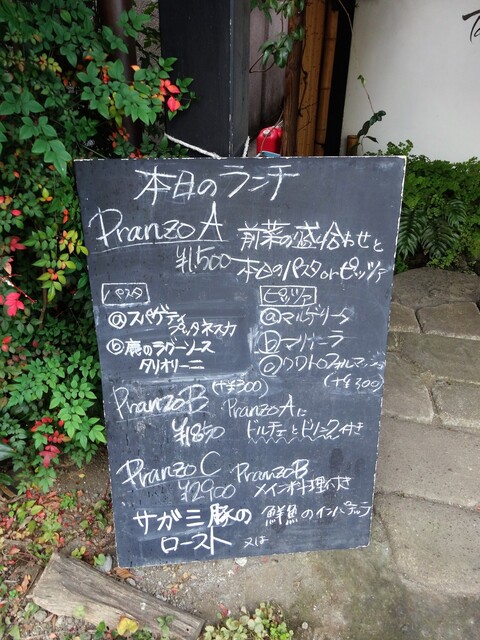 本日のランチ
Pranzo A
¥1,500
前菜の盛合わせと
本日のパスタorピッツァ
パスタ
ⓐスパゲティ
プッタネスカ
ⓑ鹿のラグーソース
タリオリーニ
(+¥300)
ピッツァ
ⓐマルゲリータ
ⓑマリナーラ
ⓒクワトロフォルマッジ
(+¥300)
Pranzo B
¥1850
Pranzo Aに
ドルチェとドリンク付き
Pranzo C
¥2900
Pranzo B
メイン料理付き
サガミ豚の
ロースト 又は
鮮魚のインパデッラ